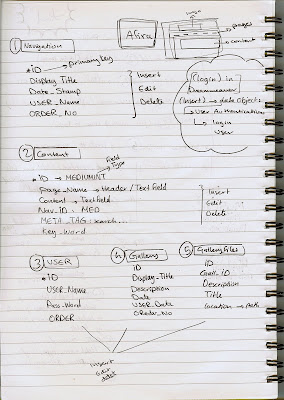 Afra
logo
pages
content
① Navigation
primary key
* ID
Display Title
Date_Stamp
USER_Name
ORDER_NO
Insert
Edit
Delete
(login) in
Dreamweaver
(Insert) → data Objects
↳ User Authentication
↳ login
User
② Content
Field
Type
* ID → MEDIUMINT
Page_Name → Header / Text field
Content → Textfield
Nav_ID : MED
META_TAG: search...
Key-Word
Insert
Edit
Delete
③ USER
* ID
USER_Name
Pass-Word
ORDER
④ Gallery
ID
Display-Title
Description
Date
USER_Date
Order_No
⑤ Gallery Files
ID
Gall_ID
Description
Title
location → Path
insert
edit
delet